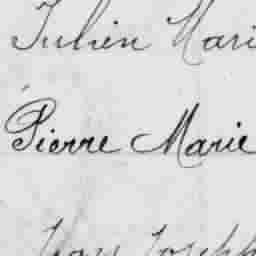 Julien Mari
Pierre Marie
Joseph